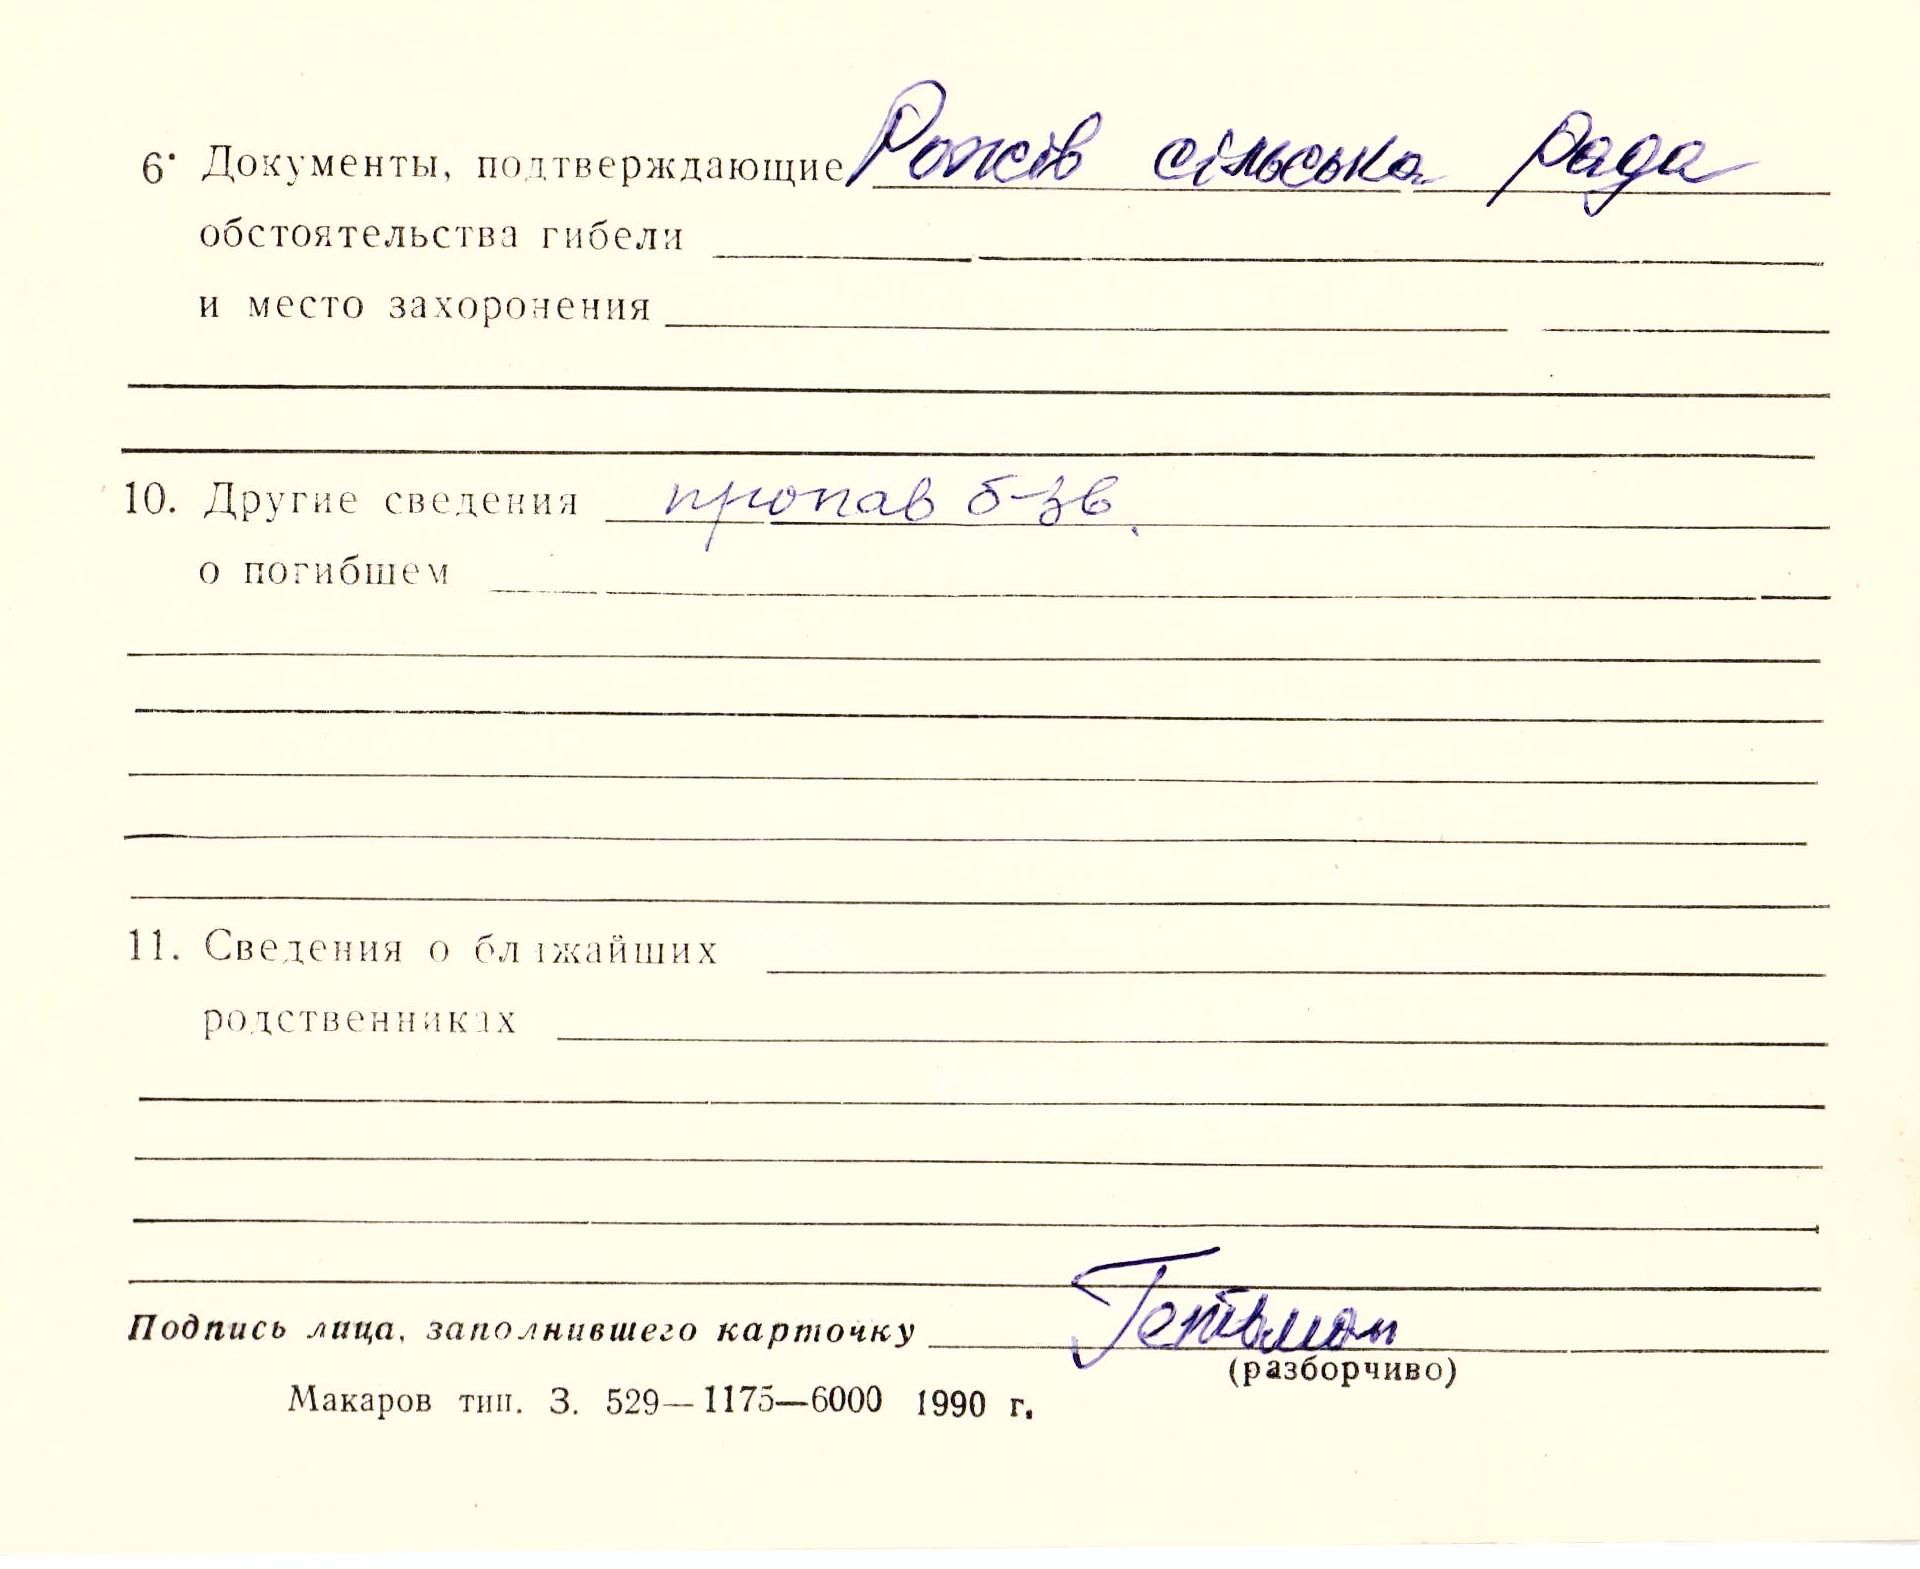 6. Документы, подтверждающие Рожів сільська рада
обстоятельства гибели
и место захоронения
10. Другие сведения пропав б-зв.
о погибшем
11. Сведения о ближайших
родственниках
Подпись лица, заполнившего карточку Гетьман
(разборчиво)
Макаров тип. З. 529—1175—6000 1990 г.